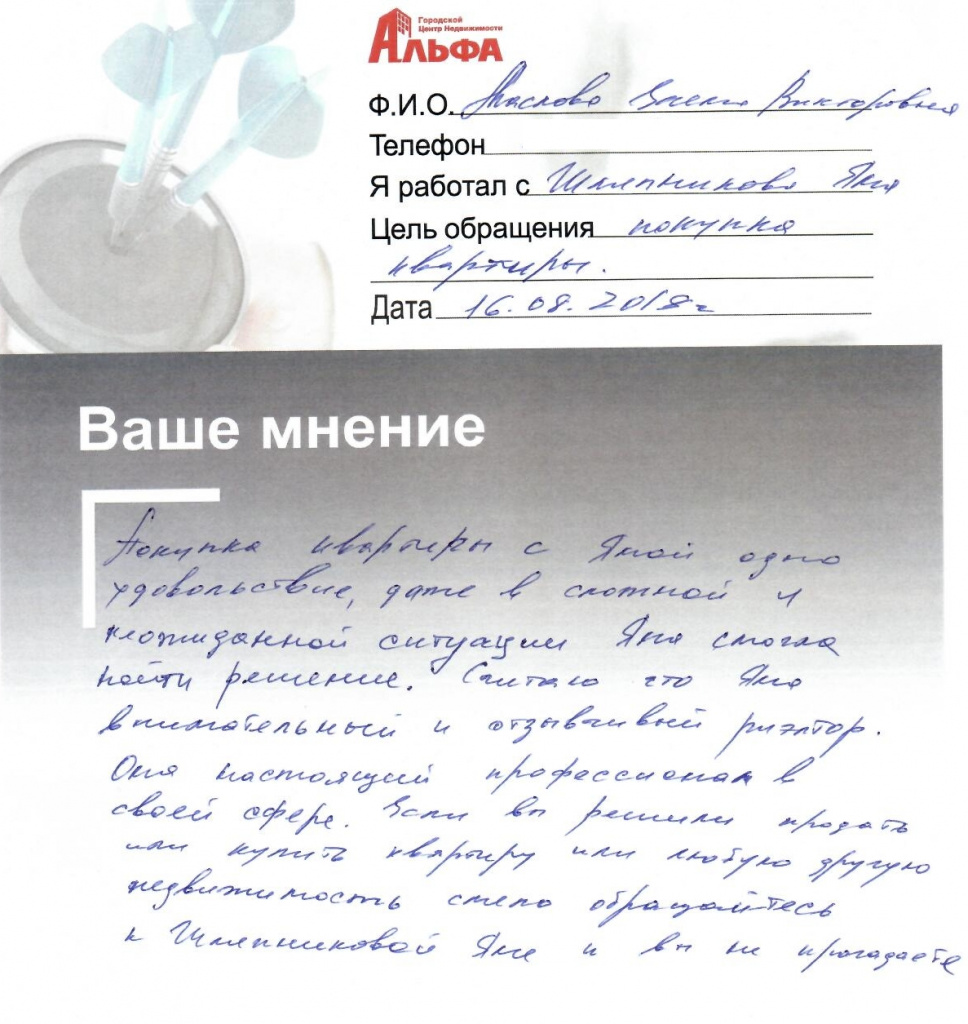 Городской
Центр Недвижимости
АЛЬФА
Ф.И.О. Маслова Елена Викторовна
Телефон
Я работал с Шляпникова Яна
Цель обращения покупка
квартиры.
Дата 16.08.2018г
Ваше мнение
Покупка квартиры с Яной одно
удовольствие, даже в сложной и
неожиданной ситуации Яна смогла
найти решение. Считаю что Яна
внимательный и отзывчивый риэлтор.
Она настоящий профессионал в
своей сфере. Если вы решили продать
или купить квартиру или любую другую
недвижимость смело обращайтесь
к Шляпниковой Яне и вы не прогадаете